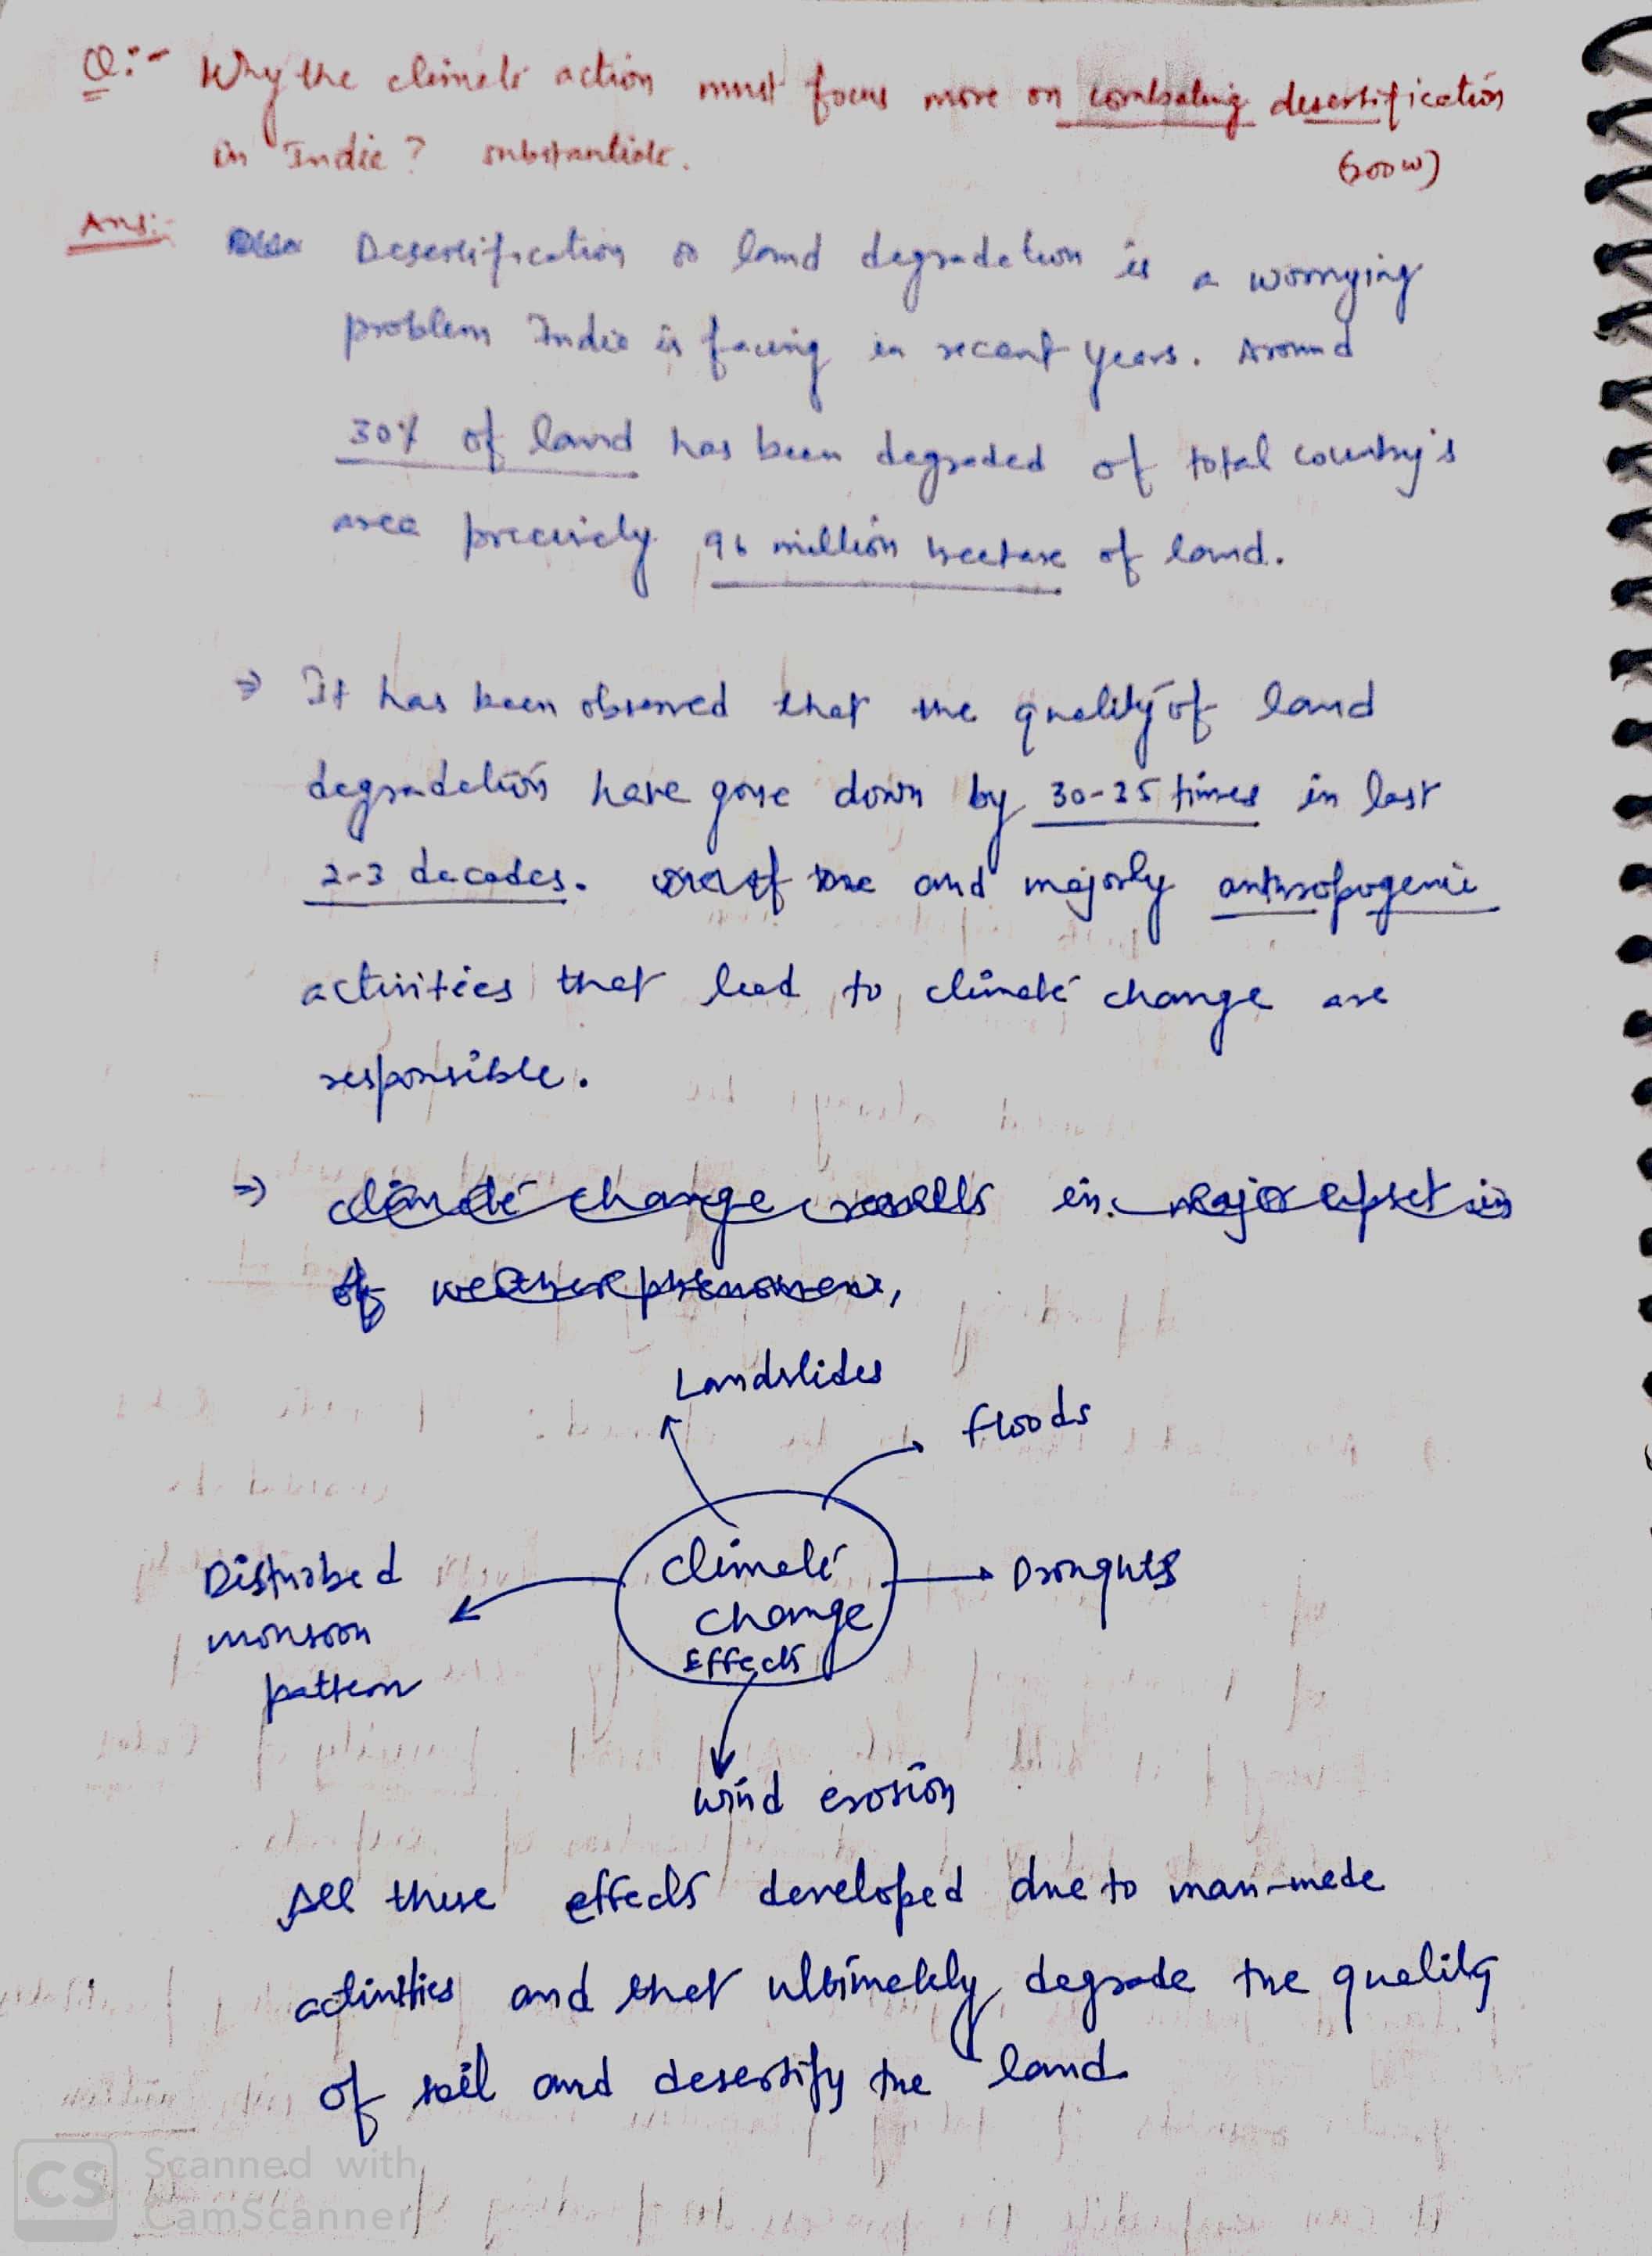 Q:- Why the climate action must focus more on combating desertification
in India? substantiate.
(200 w)
Ans:- Desertification or land degradation is a worrying
problem India is facing in recent years. Around
30% of land has been degraded of total country's
area precisely 96 million hectare of land.
⇒ It has been observed that the quality of land
degradation have gone down by 30-35 times in last
2-3 decades. and majorly anthropogenic
activities that lead to climate change are
responsible.
⇒ climate change results in major upset in
of weather phenomena,
Landslides
floods
Disturbed
monsoon
pattern
climate
change
Effects
Droughts
wind erosion
All these effects developed due to man-made
activities and that ultimately degrade the quality
of soil and desertify the land
CS Scanned with
CamScanner